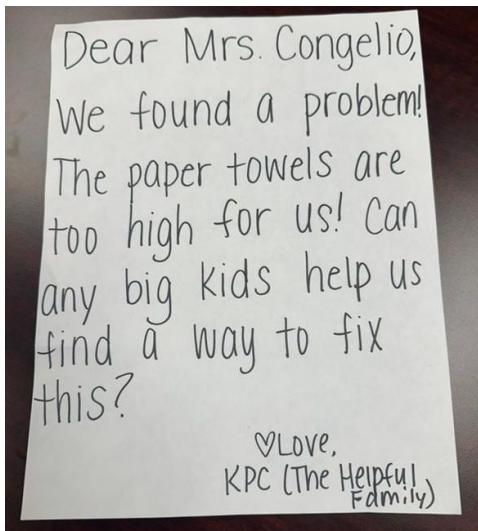 Dear Mrs. Congelio,
We found a problem!
The paper towels are
too high for us! Can
any big kids help us
find a way to fix
this?
♡Love,
KPC (The Helpful
Family)